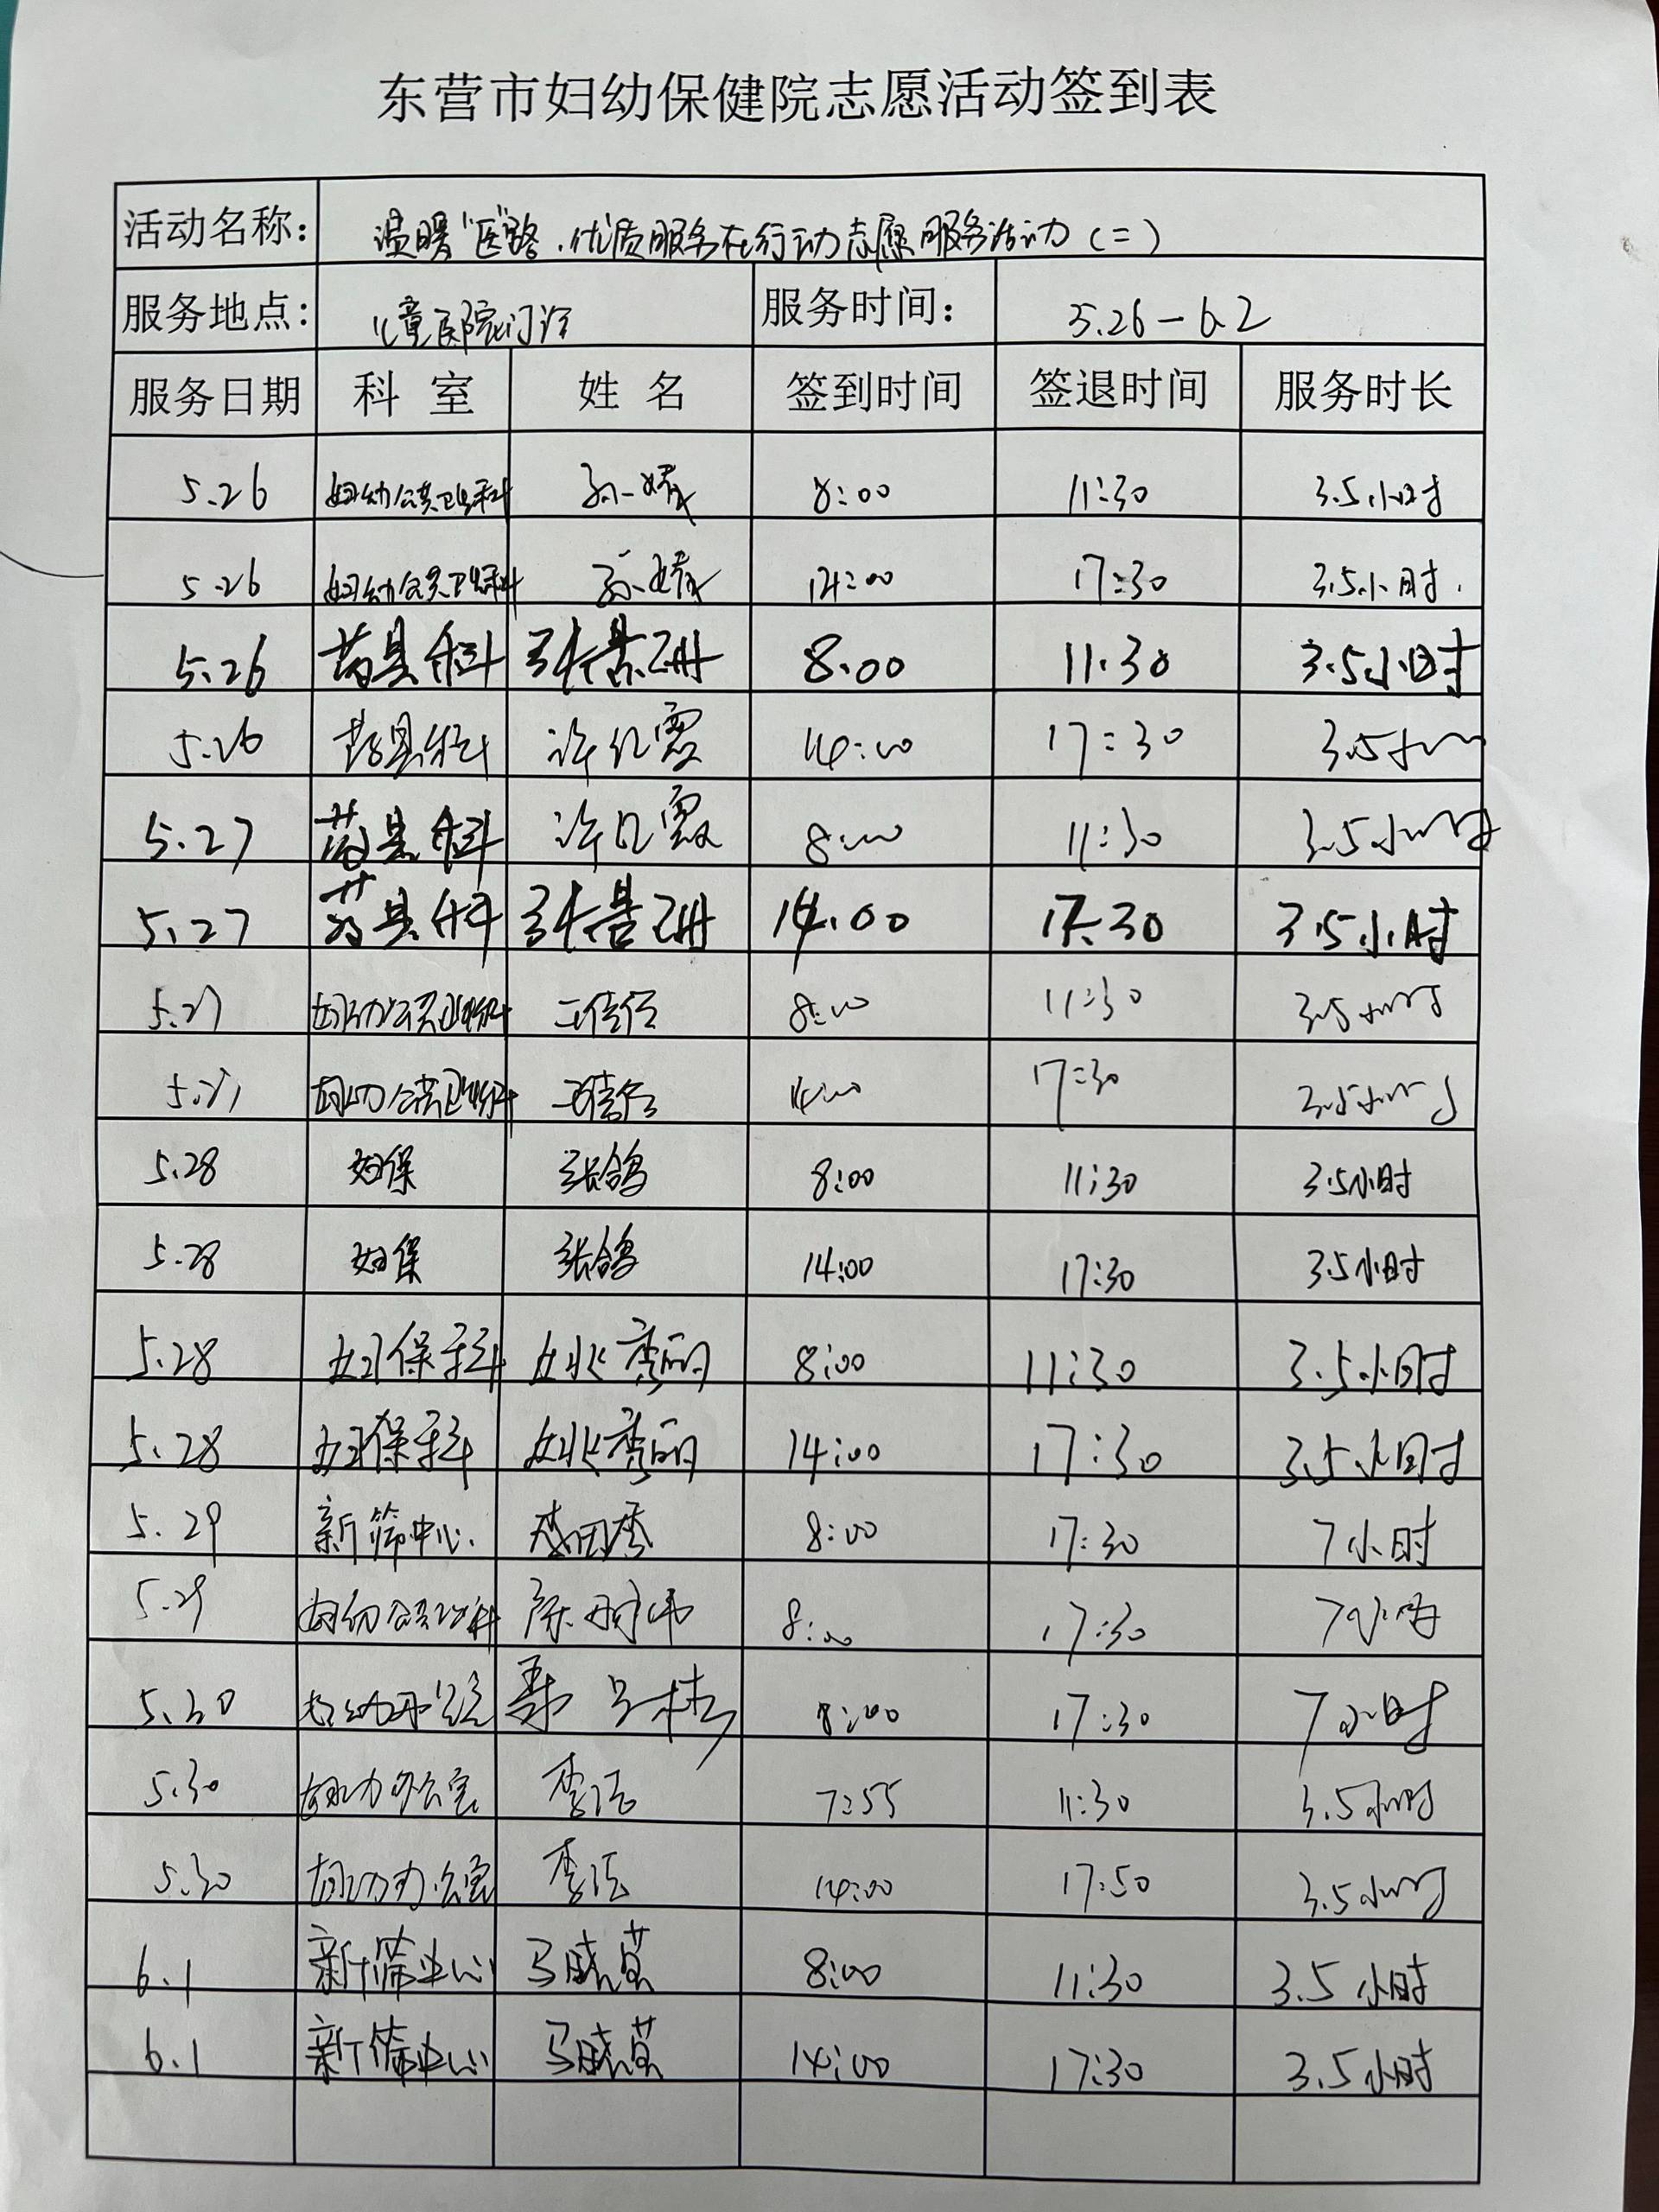 东营市妇幼保健院志愿活动签到表
活动名称： 温暖“医”路.优质服务在行动志愿服务活动（二）
服务地点： 儿童医院门诊 服务时间： 5.26—6.2
服务日期 科 室 姓 名 签到时间 签退时间 服务时长
5.26 妇幼公共卫生科 孙婧 8:00 11:30 3.5小时
5.26 妇幼公共卫生科 孙婧 14:00 17:30 3.5小时.
5.26 药具科 张景珊 8.00 11.30 3.5小时
5.26 药具科 许红霞 14:00 17:30 3.5小时
5.27 药具科 许红霞 8:00 11:30 3.5小时
5.27 药具科 张景珊 14.00 17.30 3.5小时
5.27 妇幼公共卫生科 8:00 11:30 3.5小时
5.27 妇幼公共卫生科 14:00 17:30 3.5小时
5.28 妇保 张鸽 8:00 11:30 3.5小时
5.28 妇保 张鸽 14:00 17:30 3.5小时
5.28 妇保科 姚秀丽 8:00 11:30 3.5小时
5.28 妇保科 姚秀丽 14:00 17:30 3.5小时
5.29 新筛中心. 8:00 17:30 7小时
5.29 妇幼公共卫生科 8:00 17:30 7小时
5.30 妇幼办公室 8:00 17:30 7小时
5.30 妇幼办公室 7:55 11:30 3.5小时
5.30 妇幼办公室 14:00 17:50 3.5小时
6.1 新筛中心 马晓莫 8:00 11:30 3.5小时
6.1 新筛中心 马晓莫 14:00 17:30 3.5小时